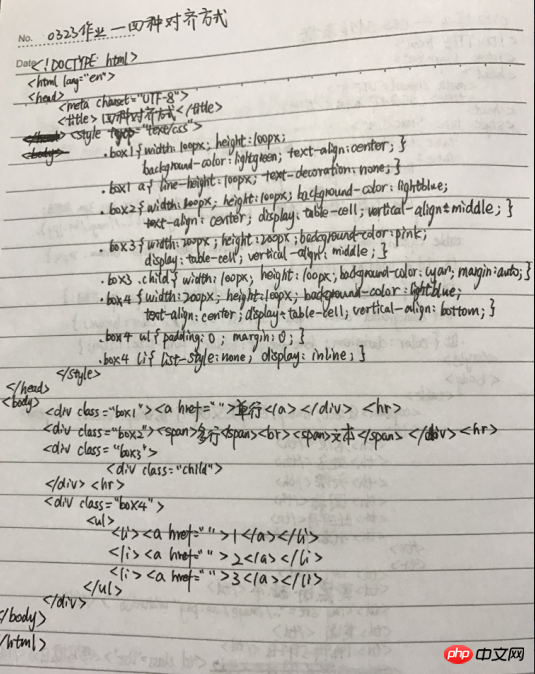 No. 0323作业—四种对齐方式
Date <!DOCTYPE html>
<html lang="en">
<head>
<meta charset="UTF-8">
<title>四种对齐方式</title>
<style type="text/css">
.box1{width:100px; height:100px;
background-color:lightgreen; text-align:center;}
.box1 a{line-height:100px; text-decoration:none;}
.box2{width:200px; height:100px; background-color:lightblue;
text-align:center; display:table-cell; vertical-align:middle;}
.box3{width:200px; height:200px; background-color:pink;
display:table-cell; vertical-align:middle;}
.box3 .child{width:100px; height:100px; background-color:cyan; margin:auto;}
.box4{width:200px; height:100px; background-color:lightblue;
text-align:center; display:table-cell; vertical-align:bottom;}
.box4 ul{padding:0; margin:0;}
.box4 li{list-style:none; display:inline;}
</style>
</head>
<body>
<div class="box1"><a href="">单行</a></div> <hr>
<div class="box2"><span>多行<span><br><span>文本</span></div><hr>
<div class="box3">
<div class="child">
</div><hr>
<div class="box4">
<ul>
<li><a href="">1</a></li>
<li><a href="">2</a></li>
<li><a href="">3</a></li>
</ul>
</div>
</body>
/html>
php中文网